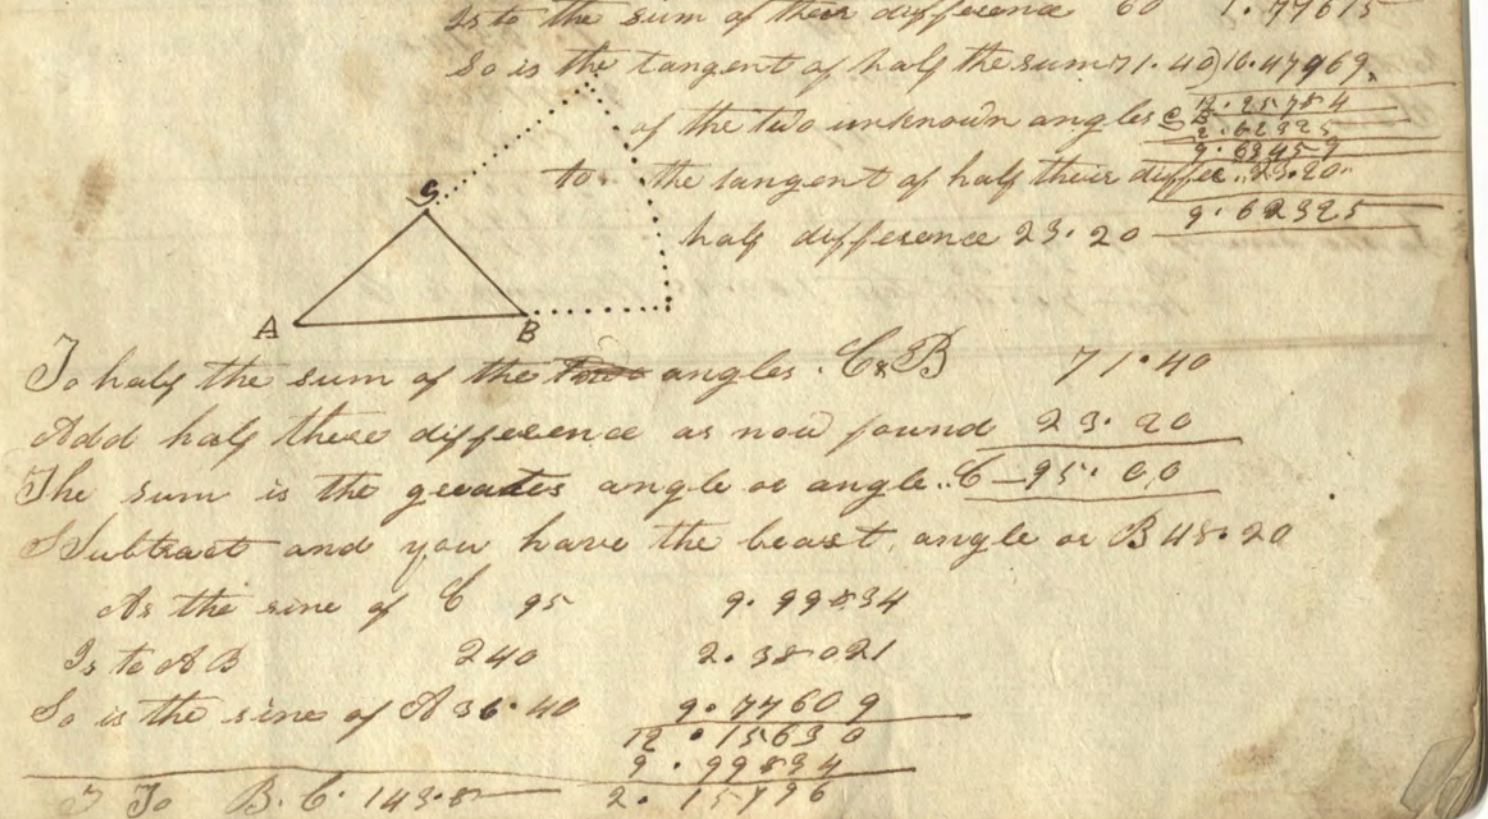 Is to the sum of their difference 60 1.77815
So is the tangent of half the sum 71.40) 10.47969
of the two unknown angles C B 12.25784
2.62325
9.63459
to the tangent of half their differ.. 23.20
half difference 23.20 9.62325
C
A
B
To half the sum of the angles. C & B 71.40
Add half these difference as now found 23.20
The sum is the greates angle or angle.. C 95.00
Subtract and you have the least angle or B 48.20
As the sine of C 95 9.99834
Is to A B 240 2.38021
So is the sine of A 36.40 9.77609
12.15630
9.99834
To B.C. 143.8 2.15796